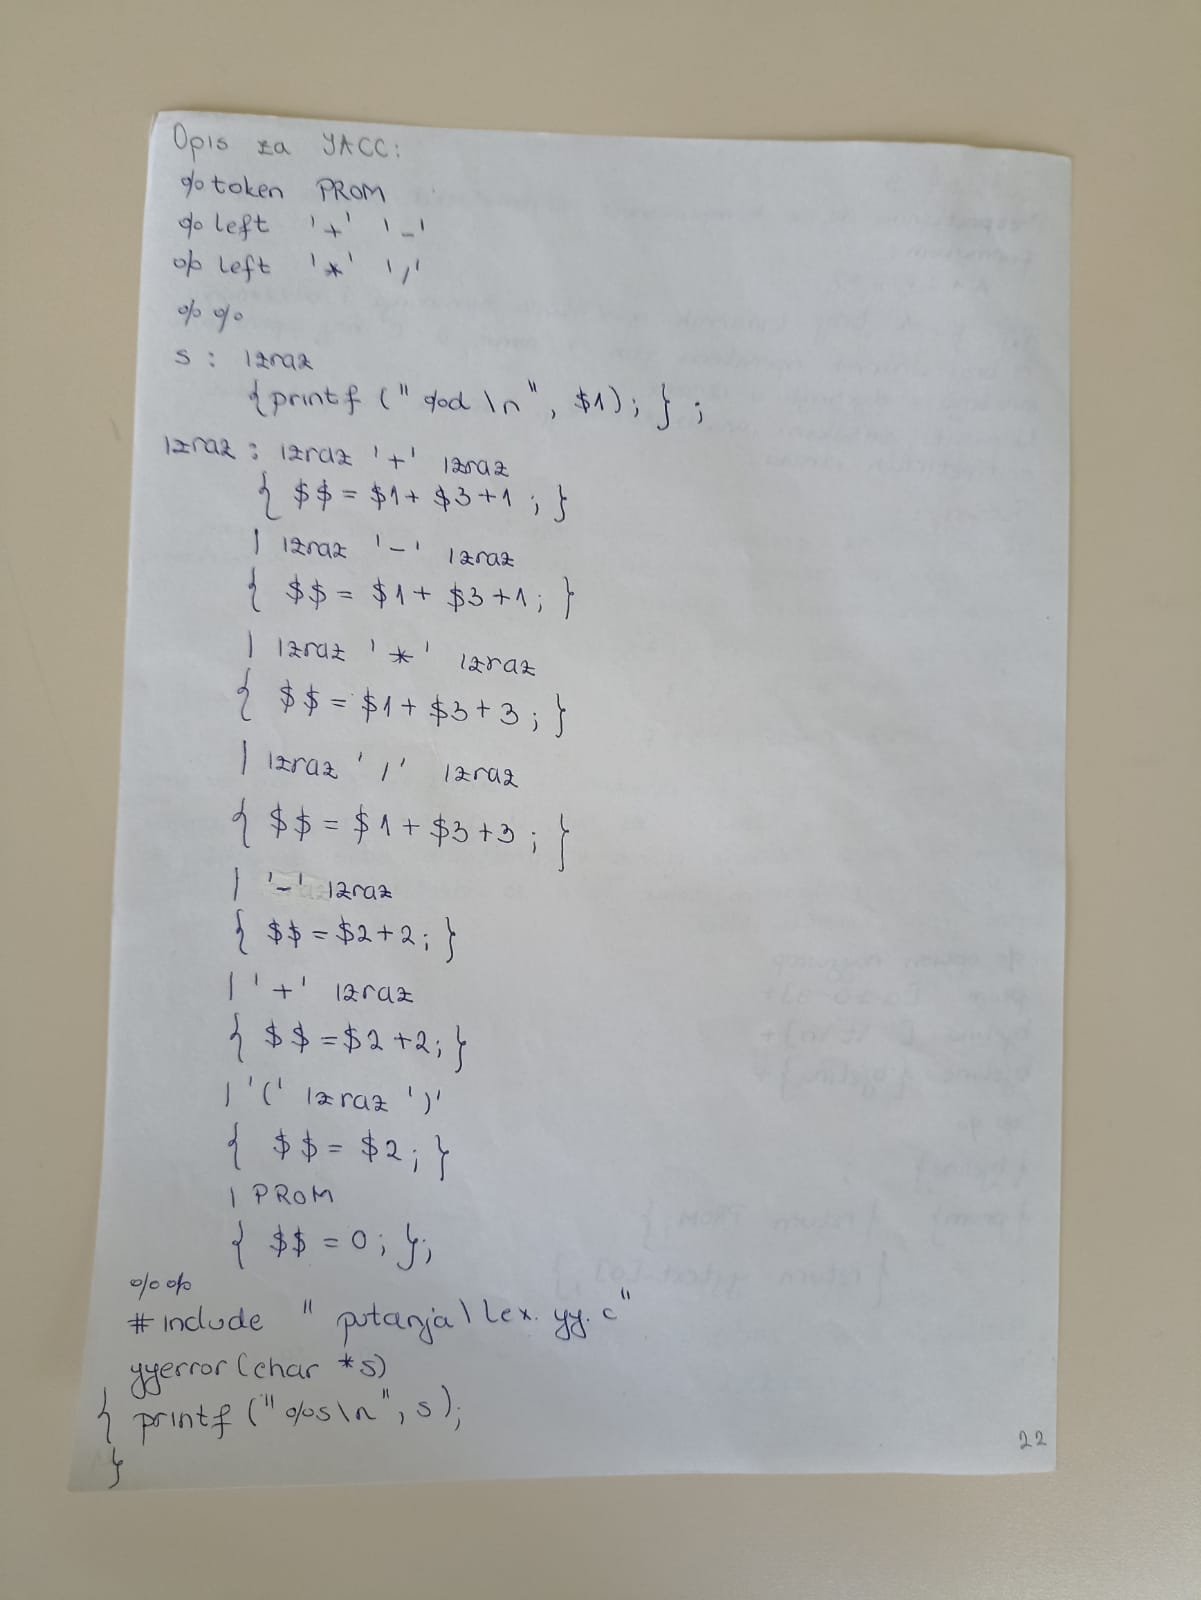 Opis za YACC:
%token PROM
%left '+' '-'
%left '*' '/'
%%
s : izraz
{printf ("%d\n", $1); } ;
izraz : izraz '+' izraz
{ $$ = $1 + $3 + 1 ; }
| izraz '-' izraz
{ $$ = $1 + $3 + 1 ; }
| izraz '*' izraz
{ $$ = $1 + $3 + 3 ; }
| izraz '/' izraz
{ $$ = $1 + $3 + 3 ; }
| '-' izraz
{ $$ = $2 + 2 ; }
| '+' izraz
{ $$ = $2 + 2 ; }
| '(' izraz ')'
{ $$ = $2 ; }
| PROM
{ $$ = 0 ; };
%%
#include "putanja\lex.yy.c"
yyerror (char *s)
{ printf ("%s\n", s);
}
22